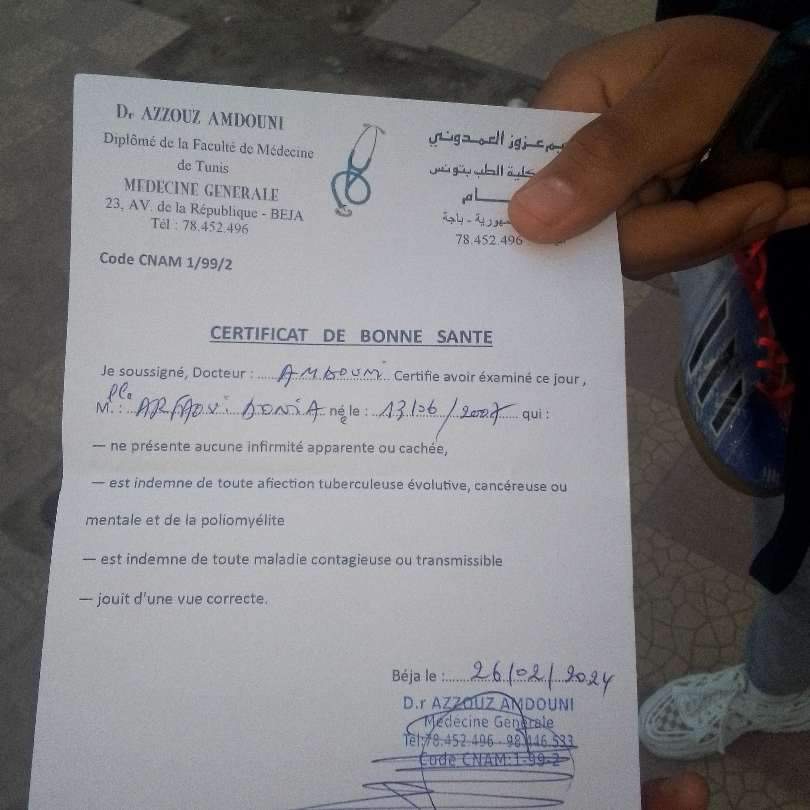 Dr AZZOUZ AMDOUNI
Diplômé de la Faculté de Médecine
de Tunis
MEDECINE GENERALE
23, AV. de la République - BEJA
Tél : 78.452.496
Code CNAM 1/99/2
عزوز العمدوني
كلية الطب بتونس
ـام
ـهورية - باجة
78.452.496
CERTIFICAT DE BONNE SANTE
Je soussigné, Docteur : AMDOUNI Certifie avoir éxaminé ce jour,
M. : DONIA né e le : 13/06/2007 qui :
— ne présente aucune infirmité apparente ou cachée,
— est indemne de toute afiection tuberculeuse évolutive, cancéreuse ou
mentale et de la poliomyélite
— est indemne de toute maladie contagieuse ou transmissible
— jouit d'une vue correcte.
Béja le : 26/02/2024
D.r AZZOUZ AMDOUNI
Médecine Genérale
Tél:78.452.496 - 98.446.533
Code CNAM:1-99-2